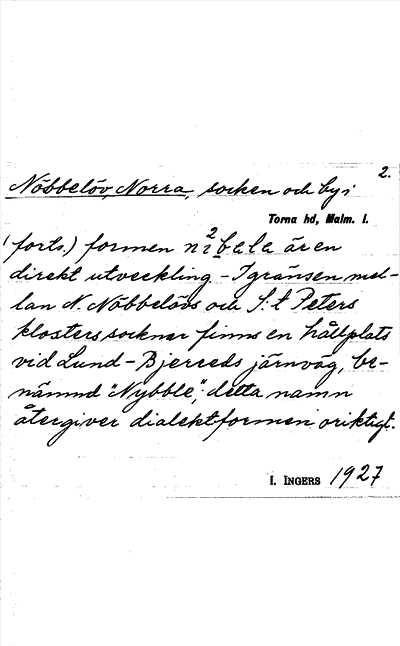 2.
Nöbbelöv, Norra, socken och by i
Torna hd, Malm. l.
(forts.) formen nibala är en
direkt utveckling. – I gränsen mel-
lan N. Nöbbelövs och S:t Peters
klosters socknar finns en hållplats
vid Lund–Bjerreds järnväg, be-
nämnd "Nybble"; detta namn
återgiver dialektformen oriktigt.
I. INGERS 1927